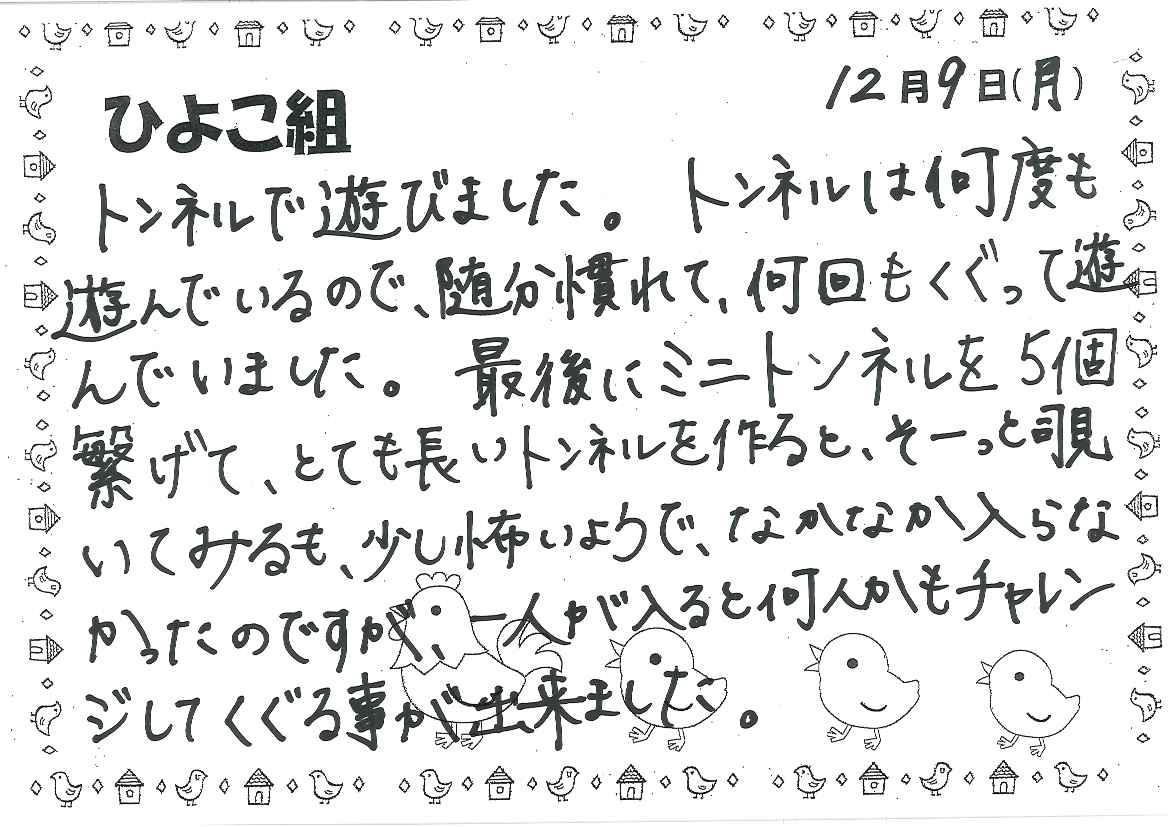 12月9日(月)
ひよこ組
トンネルで遊びました。 トンネルは何度も
遊んでいるので、随分慣れて、何回もくぐって遊
んでいました。 最後にミニトンネルを5個
繋げて、とても長いトンネルを作ると、そーっと覗
いてみるも、少し怖いようで、なかなか入らな
かったのですが、一人が入ると何人かもチャレン
ジしてくぐる事が出来ました。